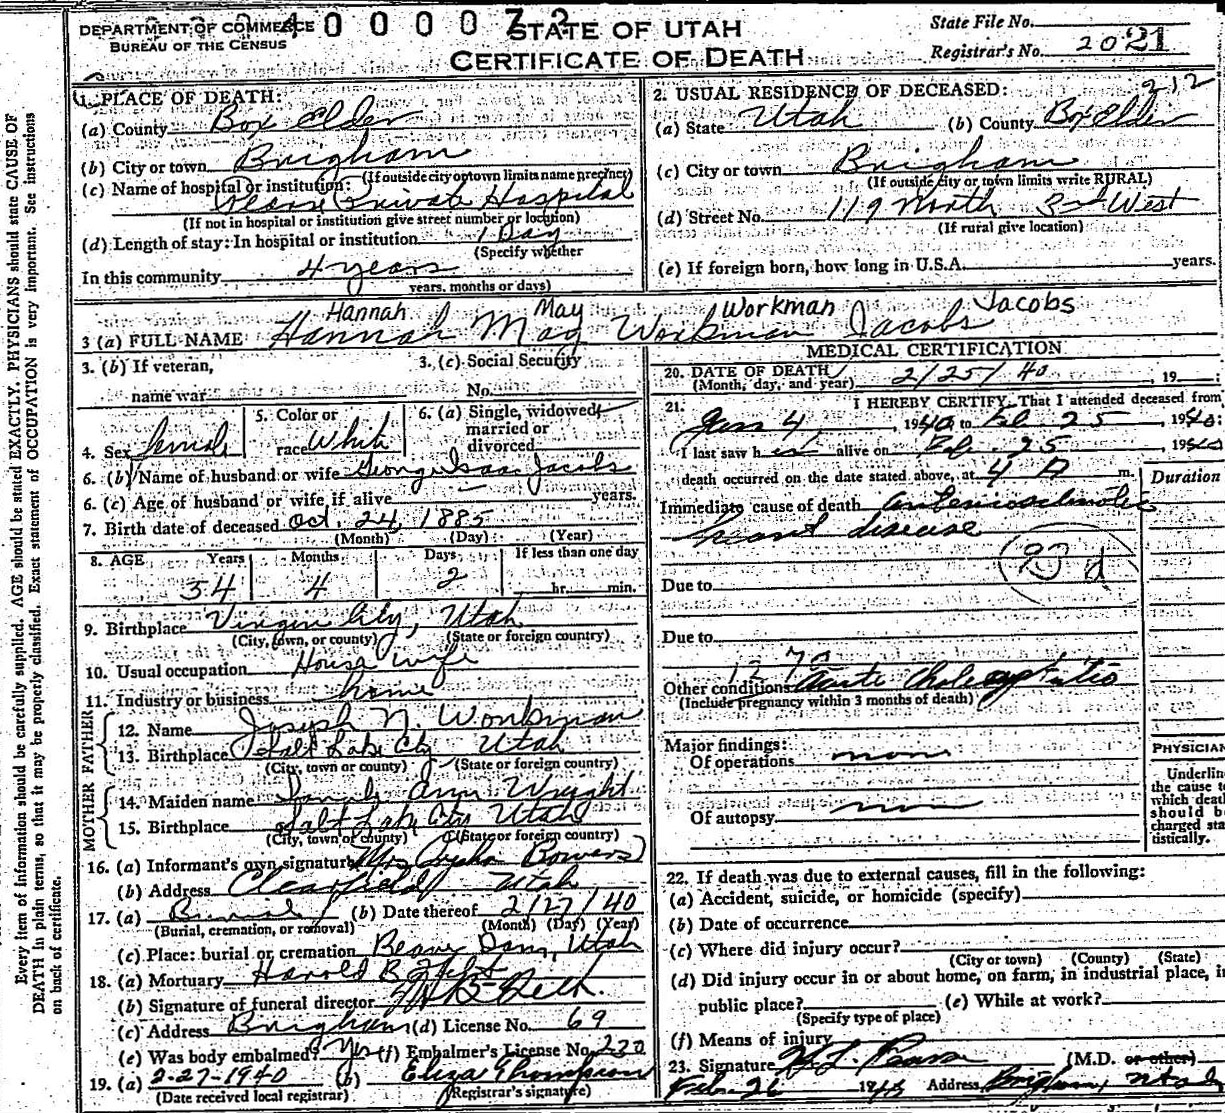 DEPARTMENT OF COMMERCE
BUREAU OF THE CENSUS
4 0 0 0 0 7 2
STATE OF UTAH
CERTIFICATE OF DEATH
State File No.
Registrar's No. 2021
212
1. PLACE OF DEATH:
(a) County Box Elder
(b) City or town Brigham
(If outside city or town limits name precinct)
(c) Name of hospital or institution:
Pearse Private Hospital
(If not in hospital or institution give street number or location)
(d) Length of stay: In hospital or institution 1 Day
(Specify whether
In this community 4 years
years, months or days)
2. USUAL RESIDENCE OF DECEASED:
(a) State Utah (b) County Box Elder
(c) City or town Brigham
(If outside city or town limits write RURAL)
(d) Street No. 119 North 3rd West
(If rural give location)
(e) If foreign born, how long in U.S.A. years.
Hannah May Workman Jacobs
3 (a) FULL NAME Hannah May Workman Jacobs
3. (b) If veteran,
name war
3. (c) Social Security
No.
4. Sex female
5. Color or
race White
6. (a) Single, widowed,
married or
divorced
6. (b) Name of husband or wife George Isaac Jacobs
6. (c) Age of husband or wife if alive years.
7. Birth date of deceased Oct. 24, 1885
(Month) (Day) (Year)
8. AGE Years Months Days If less than one day
54 4 2 hr. min.
9. Birthplace Virgin City, Utah
(City, town, or county) (State or foreign country)
10. Usual occupation House wife
11. Industry or business home
FATHER
12. Name Joseph N. Workman
13. Birthplace Salt Lake City Utah
(City, town or county) (State or foreign country)
MOTHER
14. Maiden name Ann Wright
15. Birthplace Salt Lake City Utah
(City, town or county) (State or foreign country)
16. (a) Informant's own signature Mrs Bowers
(b) Address Clearfield Utah
17. (a) Burial (b) Date thereof 2/27/40
(Burial, cremation, or removal) (Month) (Day) (Year)
(c) Place: burial or cremation Beaver Dam, Utah
18. (a) Mortuary Harold B Felt
(b) Signature of funeral director
(c) Address Brigham (d) License No. 69
(e) Was body embalmed? Yes (f) Embalmer's License No. 230
19. (a) 2-27-1940 (b) Eliza Thompson
(Date received local registrar) (Registrar's signature)
MEDICAL CERTIFICATION
20. DATE OF DEATH
(Month, day, and year) 2/25/40, 19
21. I HEREBY CERTIFY, That I attended deceased from
Jan 4, 1940 to Feb 25, 1940:
I last saw her alive on Feb. 25, 1940
death occurred on the date stated above, at 4 A m.
Duration
Immediate cause of death arteriosclerotic
heart disease
Due to
Due to
127a
Other conditions acute
(Include pregnancy within 3 months of death)
Major findings:
Of operations none
Of autopsy none
PHYSICIAN
Underline
the cause to
which death
should be
charged sta
tistically.
22. If death was due to external causes, fill in the following:
(a) Accident, suicide, or homicide (specify)
(b) Date of occurrence
(c) Where did injury occur?
(City or town) (County) (State)
(d) Did injury occur in or about home, on farm, in industrial place, in
public place? (e) While at work?
(Specify type of place)
(f) Means of injury
23. Signature (M.D. or other)
Feb. 26 1940 Address Brigham, Utah
Every item of information should be carefully supplied. AGE should be stated EXACTLY. PHYSICIANS should state CAUSE OF
DEATH in plain terms, so that it may be properly classified. Exact statement of OCCUPATION is very important. See instructions
on back of certificate.